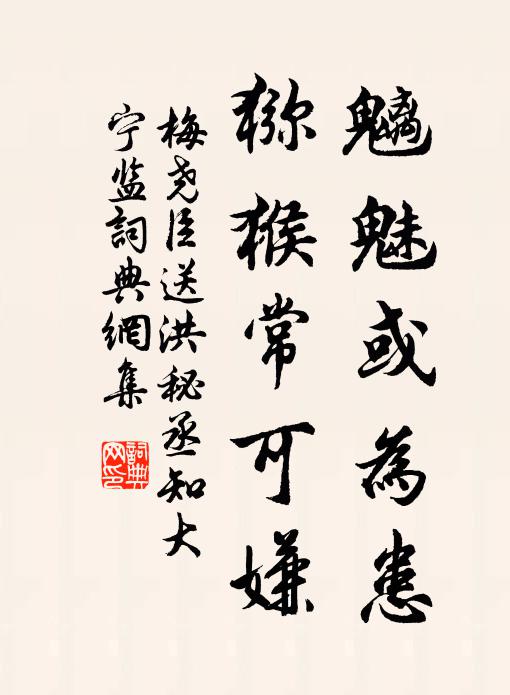 魑魅或為患
猕猴常可嫌
梅尧臣送洪秘丞知大
宁监詞典網集
詞典
网印